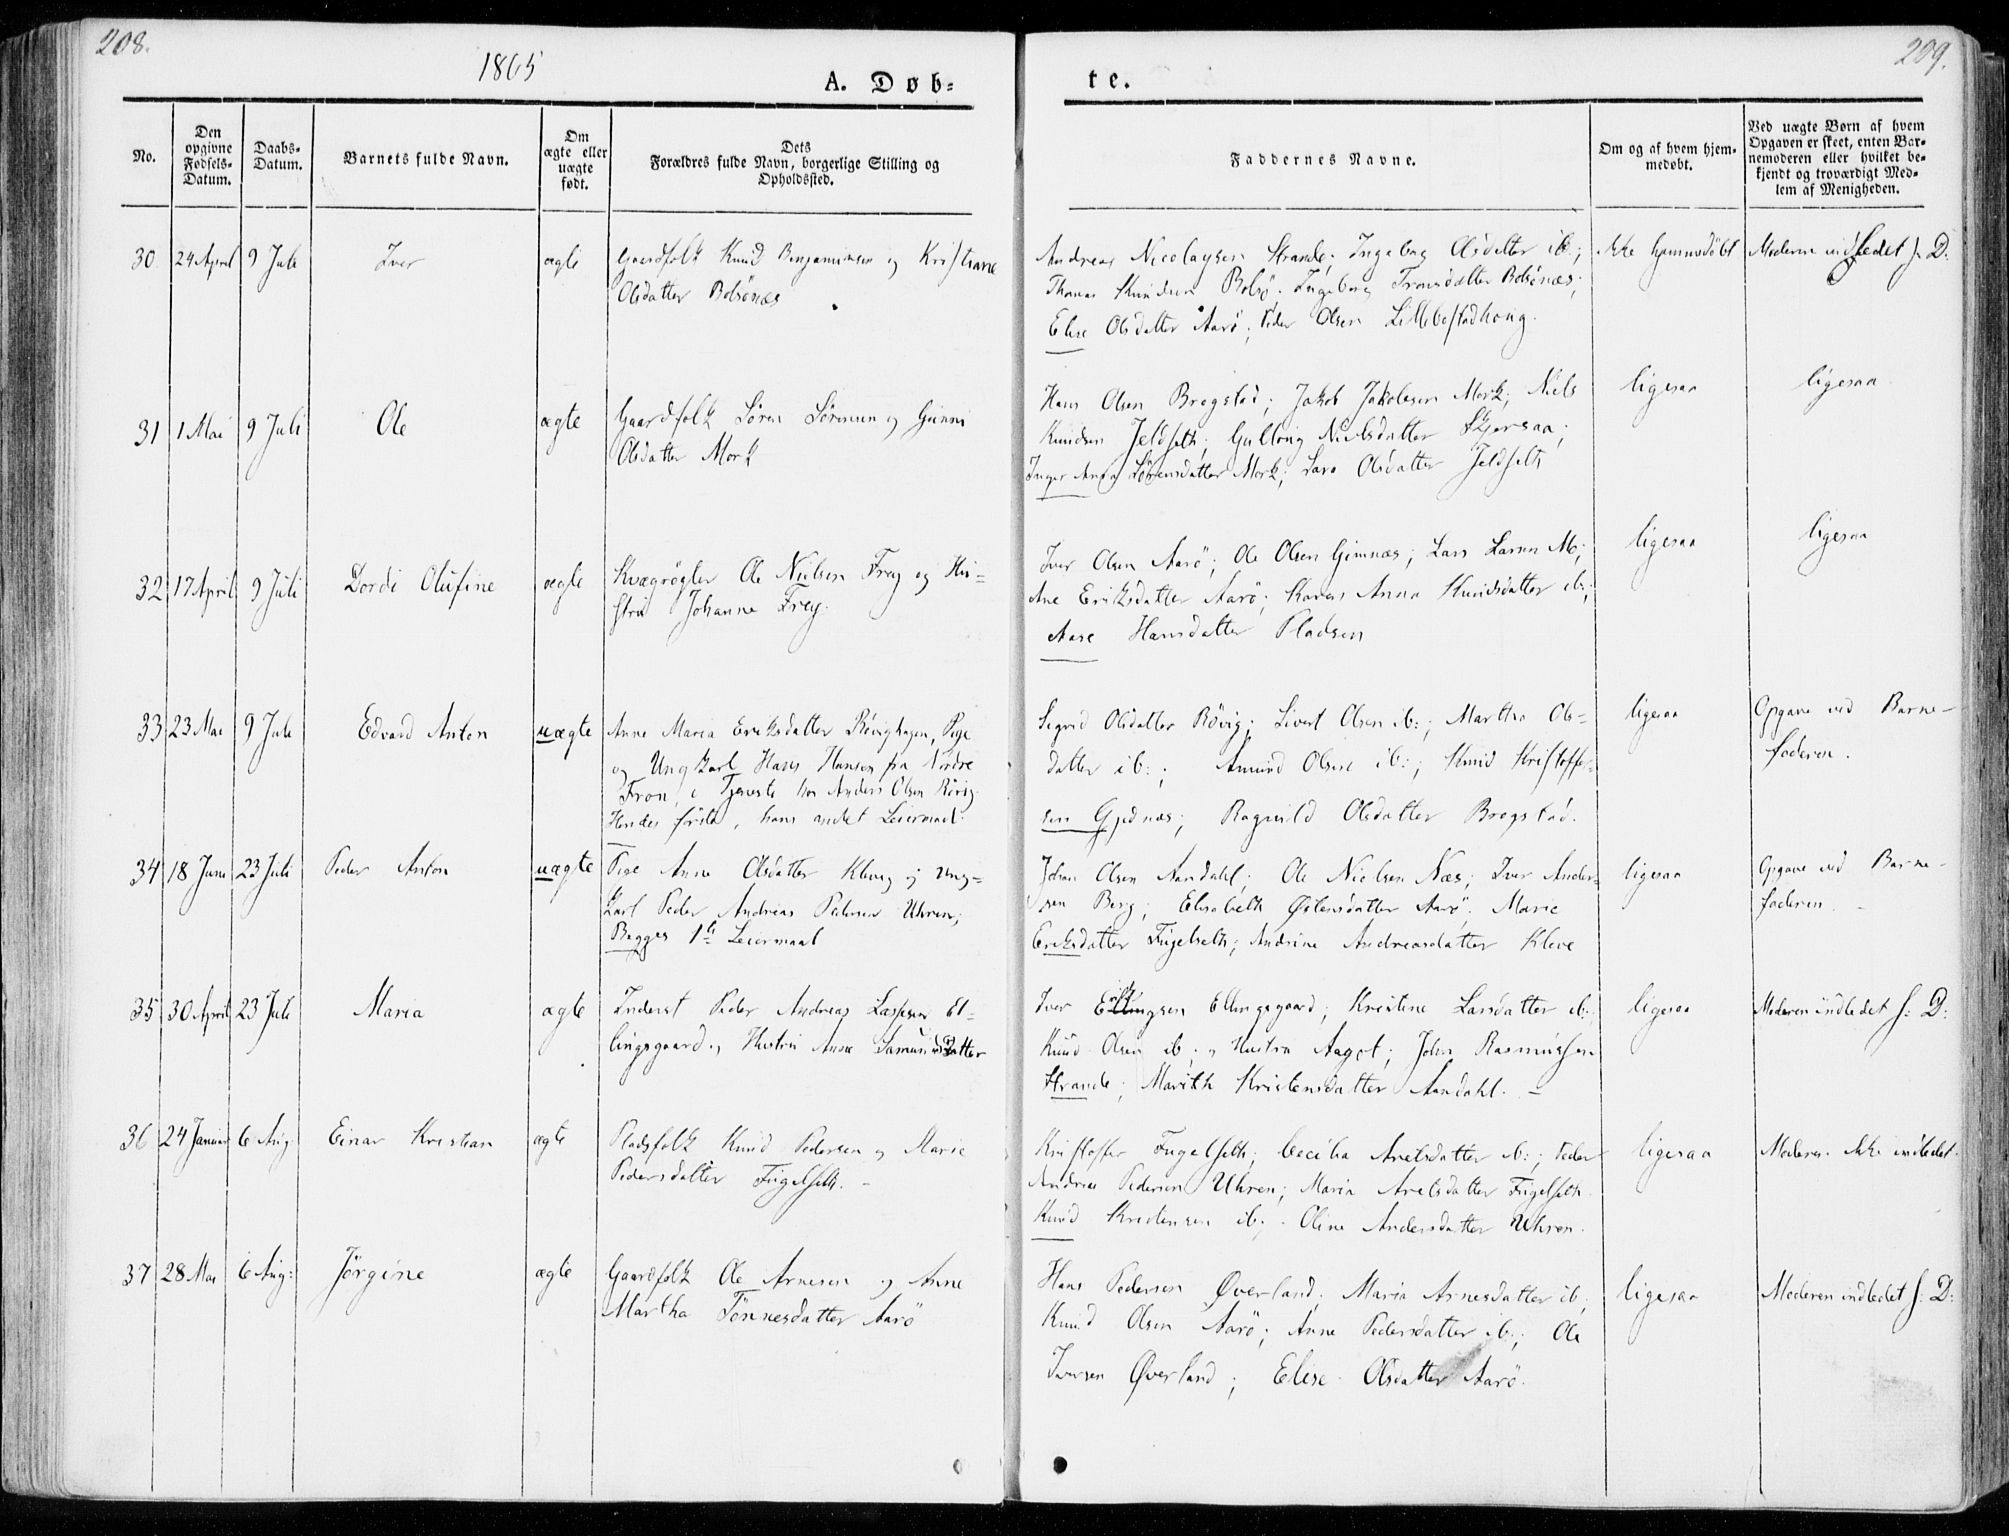 208.
1865
A. Døb-
No.
Den opgivne Fødsels-Datum.
Daabs-Datum.
Barnets fulde Navn.
Om ægte eller uægte født.
Dets Forældres fulde Navn, borgerlige Stilling og Opholdssted.
30 24 April 9 Juli Iver ægte Gaardfolk Knud Benjaminsen og Kristiane
Olsdatter Bolsönæs
31 1 Mai 9 Juli Ole ægte Gaardfolk Sören Sörensen og Gunni
Olsdatter Mork
32 17 April 9 Juli Dordi Olufine ægte Kvægrögter Ole Nielsen Frey og Hu-
stru Johanne Frey.
33 23 Mai 9 Juli Edvard Anton uægte Anne Maria Eriksdatter Rövighagen, Pige
og Ungkarl Hans Hansen fra Nordre
Fron, i Tjeneste hos Anders Olsen Rövig.
Hendes förste, hans andet Leiermaal.
34 18 Juni 23 Juli Peder Anton uægte Pige Anne Olsdatter Kleve og Ung-
karl Peder Andreas Pedersen Uhren;
Begges 1ste Leiermaal
35 30 April 23 Juli Maria ægte Inderst Peder Andreas Lassesen El-
lingsgaard og Hustru Anne Samundsdatter
36 24 Januar 6 Aug: Einar Kristian ægte Pladsfolk Knud Pedersen og Marie
Pedersdatter Fugelseth. -
37 28 Mai 6 Aug: Jörgine ægte Gaardfolk Ole Arnesen og Anne
Martha Tönnesdatter Aarö
209.
te.
Faddernes Navne.
Om og af hvem hjem-medøbt.
Ved uægte Børn af hvem Opgaven er skeet, enten Bar-nemoderen eller hvilket be-kjendt og troværdigt Med-lem af Menigheden.
Andreas Nicolaysen Strande; Ingeborg Olsdatter ib:; Ikke hjemmedöbt Moderen indledet s. D.
Thomas Knudsen Bolsö; Ingeborg Tronsdatter Bolsönæs;
Elise Olsdatter Aarö; Peder Olsen Lillebostadhoug.
Hans Olsen Bregstad; Jakob Jakobsen Mork; Niels ligesaa ligesaa
Knudsen Jeldseth; Gullong Nielsdatter Skjorsaa;
Inger Anna Sörensdatter Mork; Sara Olsdatter Jeldseth
Iver Olsen Aarö; Ole Olsen Gimnæs; Lars Larsen Mo; ligesaa ligesaa
Ane Eriksdatter Aarö; Karen Anna Knudsdatter ib:;
Aase Hansdatter Pladsen
Sigrid Olsdatter Rövig; Sivert Olsen ib:; Martha Ols- ligesaa Opgave ved Barne-
datter ib:; Amund Olsen ib:; Knud Kristoffer- faderen.
sen Gjednæs; Ragnild Olsdatter Bregstad.
Johan Olsen Aandahl; Ole Nielsen Næs; Iver Ander- ligesaa Opgave ved Barne-
sen Berg; Elisabeth Østensdatter Aarö; Marie faderen. -
Eriksdatter Fugelseth; Andrine Andreasdatter Kleve
Iver Ellingsen Ellingsgaard; Kristine Larsdatter ib:; ligesaa Moderen indledet s: D:
Knud Olsen ib:, Hustru Aagot; John Rasmussen
Strande; Marith Kristensdatter Aandahl. -
Kristoffer Fugelseth; Cecilia Aretsdatter ib:; Peder ligesaa Moderen ikke indledet.
Andreas Pedersen Uhren; Maria Aretsdatter Fugelseth
Knud Kristensen ib:; Oline Andersdatter Uhren.
Hans Pedersen Øverland; Maria Arnesdatter ib; ligesaa Moderen indledet s: D:
Knud Olsen Aarö; Anne Pedersdatter ib:; Ole
Iversen Øverland; Elise Olsdatter Aarö.